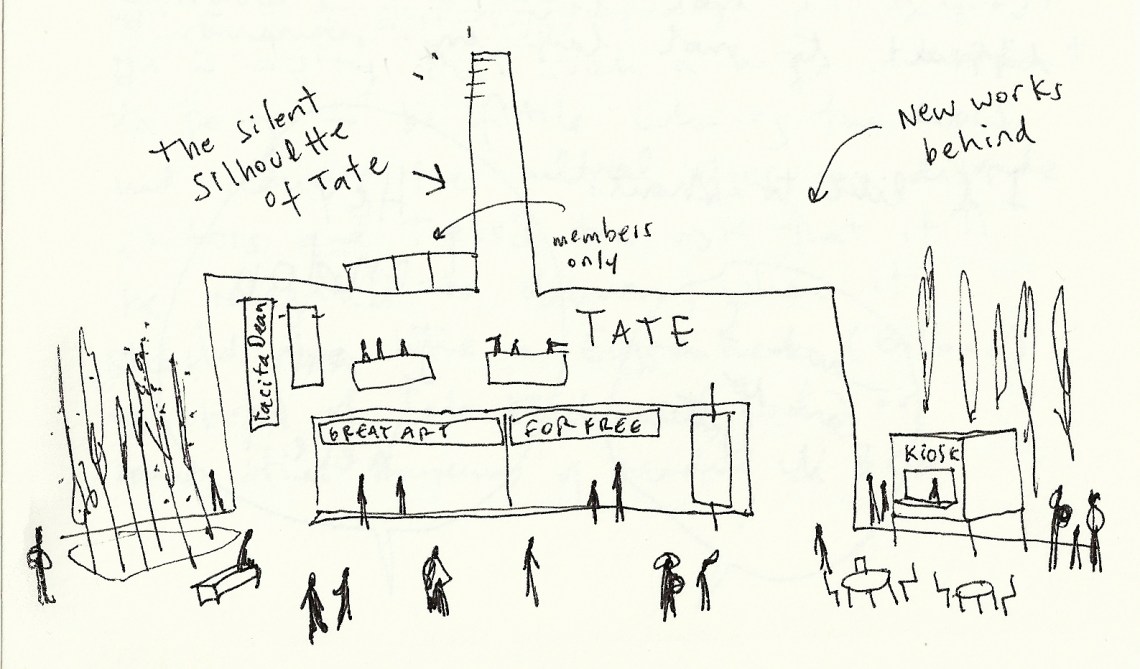 The Silent
Silhoutte
of Tate
New works
behind
members
only
Tacita Dean
TATE
GREAT ART
FOR FREE
Kiosk